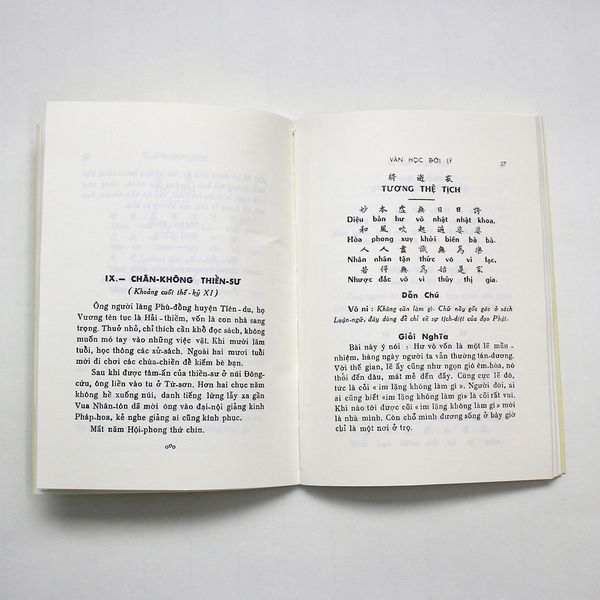 IX.— CHÂN-KHÔNG THIỀN-SƯ
(Khoảng cuối thế-kỷ XI)
Ông người làng Phù-đồng huyện Tiên-du, họ
Vương tên tục là Hải-thiềm, vốn là con nhà sang
trọng. Thuở nhỏ, chỉ thích cần khổ đọc sách, không
muốn mó tay vào những việc vặt. Khi mười lăm
tuổi, học thông các sử-sách. Ngoài hai mươi tuổi
mới đi chơi các chùa-chiền để kiếm bè bạn.
Sau khi được tâm-ấn của thiền-sư ở núi Đông-
cứu, ông liền vào tu ở Từ-sơn. Hơn hai chục năm
không hề xuống núi, danh tiếng lừng lẫy xa gần
Vua Nhân-tôn đã mời ông vào đại-nội giảng kinh
Pháp-hoa, kẻ nghe giảng ai cũng kính phục.
Mất năm Hội-phong thứ chín.
VĂN HỌC ĐỜI LÝ 57
逝 寂
TƯƠNG THỆ TỊCH
妙 本 虛 無 日 日 誇
Diệu bản hư vô nhật nhật khoa,
和 風 吹 起 遍 婆 婆
Hòa phong xuy khởi biến bà bà.
人 人 盡 識 無 為 樂
Nhân nhân tận thức vô vi lạc,
若 得 無 為 始 是 家
Nhược đắc vô vi thủy thị gia.
Dẫn Chú
Vô ni : Không cần làm gì. Chữ nầy gốc gác ở sách
Luận-ngữ, đây dùng để chỉ về sự tịch-diệt của đạo Phật.
Giải Nghĩa
Bài này ý nói : Hư vô vốn là một lẽ mầu-
nhiệm, hàng ngày người ta vẫn thường tán-dương.
Với thế gian, lẽ ấy cũng như ngọn gió êm-hòa, nó
thổi đến đâu, mát mẻ đến đấy. Cùng cực lẽ đó,
tức là cái « im lặng không làm gì ». Người đời, ai
ai cũng biết «im lặng không làm gì» là cõi rất vui.
Khi nào tới được cõi «im lặng không làm gì » mới
là nhà mình. Còn chỗ mình đương sống ở bây giờ
chỉ là một nơi ở trọ.